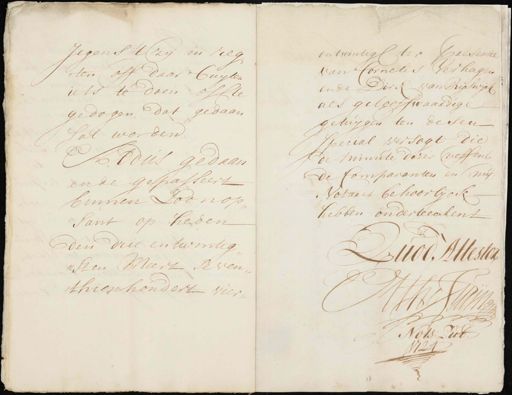 Jegens t zij in reg
ten off daar Buyten
iets te doen ofte
gedogen dat gedaan
sal worden
Aldus gedaan
ende gepasseert
binnen
op heden
den drie entwintig
sten Maart seven
thienhondert vier
entwintigh ter presentie
van Cornelis Verhagen
ende Dirk van
als geloofwaardige
getuygen ten desen
speciael versogt die
de minute deser neffens
de Comparanten en mij
Notaris behoorlyck
hebben onderteekent
Quod Attestor
Nots Pub
1724